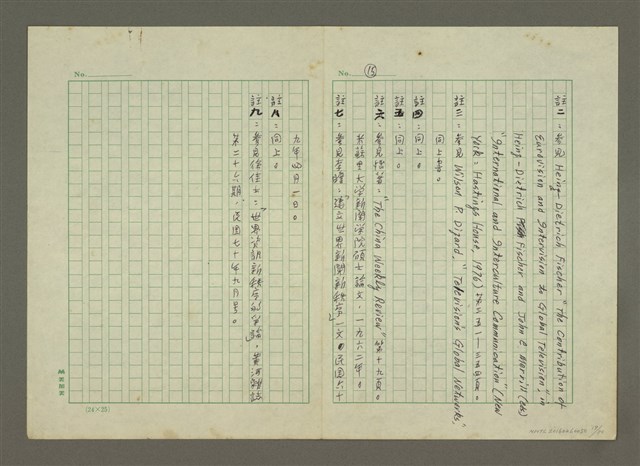 No.
15
註二：參見 Heinz-Dietrich Fischer "The Contribution of
Eurovision and Intervision to Global Television", in
Heinz-Dietrich Fischer and John C. Merrill (eds)
"International and Intercultural Communication" (New
York: Hastings House, 1976)
註三：參見 Wilson P. Dizard, "Television's Global Networks,"
同上書。
註四：同上。
註五：同上。
註六：參見 "The China Weekly Review" 第十九頁。
大學新聞學院碩士論文，一九六二年。
註七：參見李瞻：「建立世界新聞新秩序」一文，民國六十
九年四月一日。
註八：同上。
註九：參見徐佳士：「世界資訊新秩序的爭論」，黃河雜誌
第二十六期，民國七十年九月号。
No.
(24×25)